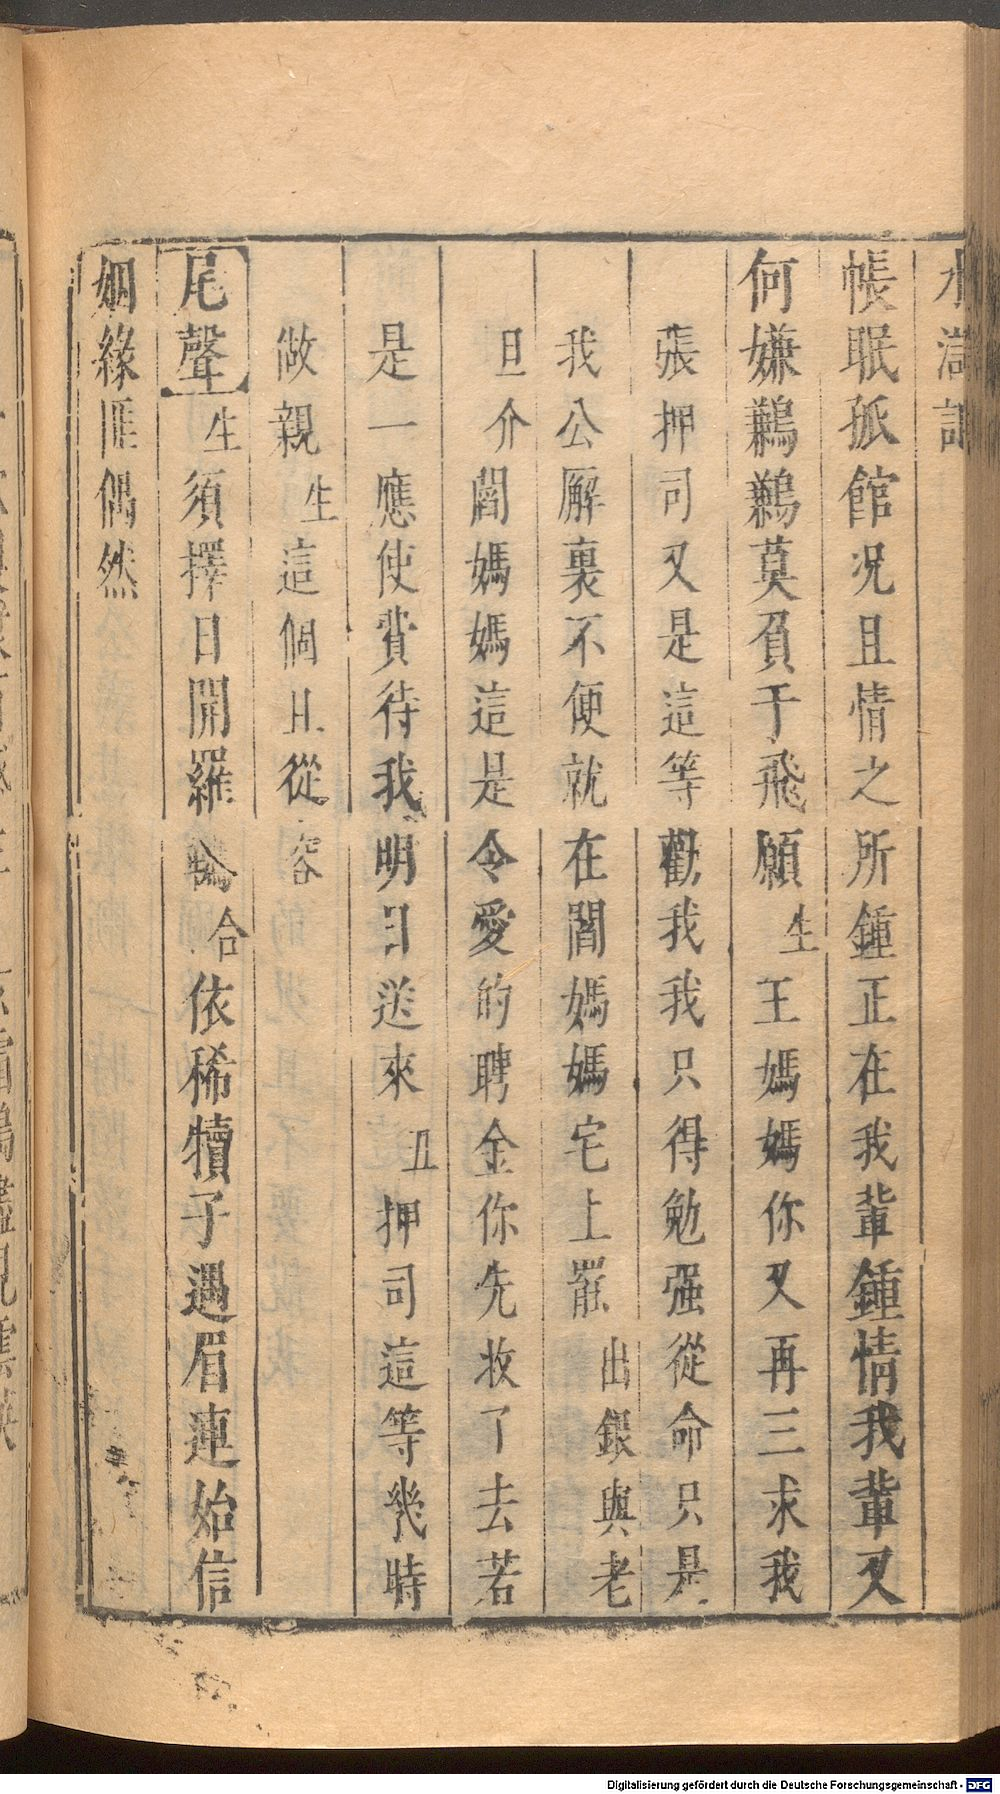 水滸記
帳眠孤館况且情之所鍾正在我輩鍾情我輩又
何嫌鶼鶼莫負于飛願生王媽媽你又再三求我
張押司又是這等勸我我只得勉强從命只是
我公廨裏不便就在閻媽媽宅上罷出銀與老
旦介閻媽媽這是令愛的聘金你先收了去若
是一應使費待我明日送來丑押司這等幾時
做親生這個且從容
尾聲生須擇日開羅合依稀犢子遇眉連始信
姻緣匪偶然
Digitalisierung gefördert durch die Deutsche Forschungsgemeinschaft - DFG